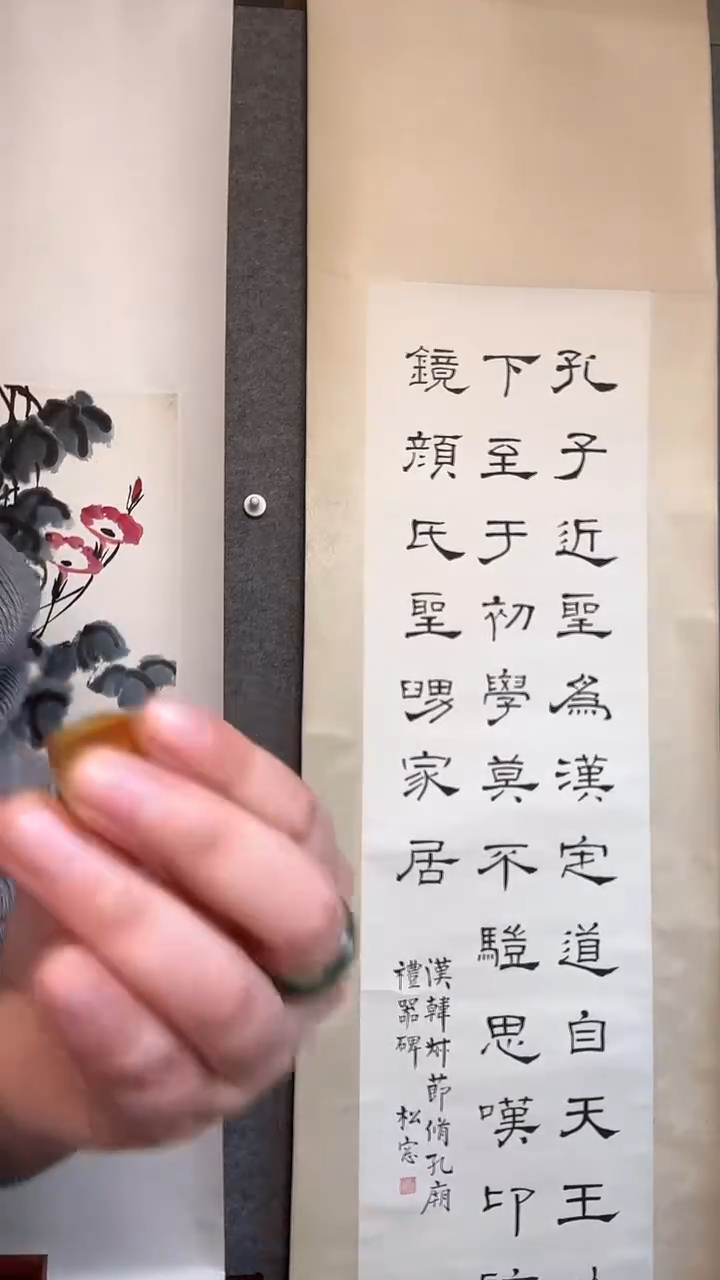 孔子近聖為漢定道自天王
下至于初學莫不驥思嘆卬
鏡顏氏聖舅家居
漢韓勑節脩孔廟
禮器碑 松窓